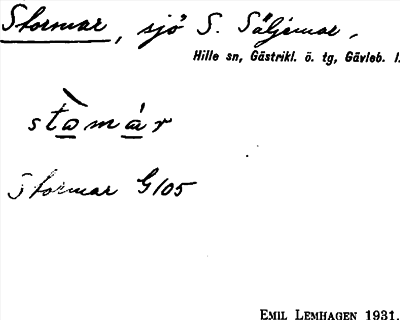 Stormar, sjö S. Säljemar,
Hille sn, Gästrikl. ö. tg, Gävleb. l.
stòmár
Stormar G105
EMIL LEMHAGEN 1931.